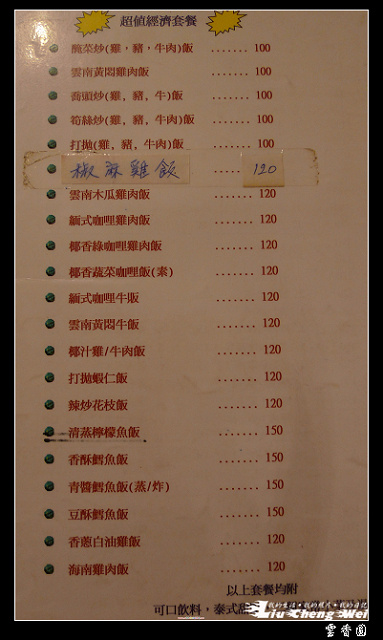 超值經濟套餐
醃菜炒(雞,豬,牛肉)飯 ....... 100
雲南黃悶雞肉飯 ....... 100
蕎頭炒(雞,豬,牛)飯 ....... 100
筍絲炒(雞,豬,牛肉)飯 ....... 100
打拋(雞,豬,牛肉)飯 ....... 100
椒麻雞飯 ..... 120
雲南木瓜雞肉飯 ....... 120
緬式咖哩雞肉飯 ....... 120
椰香綠咖哩雞肉飯 ....... 120
椰香蔬菜咖哩飯(素) ....... 120
緬式咖哩牛飯 ....... 120
雲南黃悶牛飯 ....... 120
椰汁雞/牛肉飯 ....... 120
打拋蝦仁飯 ....... 120
辣炒花枝飯 ....... 120
清蒸檸檬魚飯 ....... 150
香酥鱈魚飯 ....... 150
青醬鱈魚飯(蒸/炸) ....... 150
豆酥鱈魚飯 ....... 150
香蔥白油雞飯 ....... 120
海南雞肉飯 ....... 120
以上套餐均附
可口飲料,泰式甜
我的生活•我的相片•我的日記
Liu Cheng Wei
雲香園